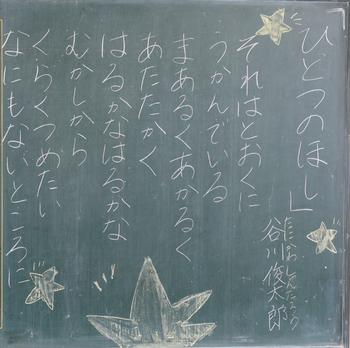 ひとつのほし」
谷川俊太郎
たにかわしゅんたろう
それはとおくに
うかんでいる
まあるくあかるく
あたたかく
はるかなはるかな
むかしから
くらくつめたい
なにもないところに